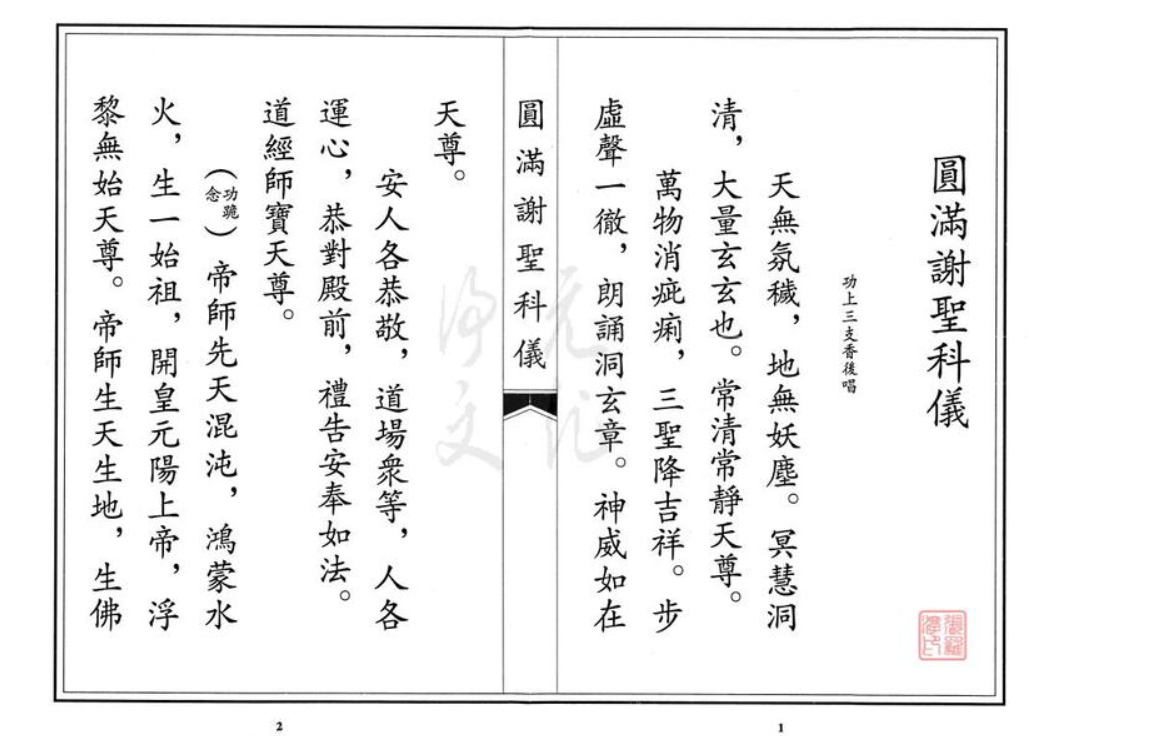 圓滿謝聖科儀
功上三支香後唱
天無氛穢，地無妖塵。冥慧洞
清，大量玄玄也。常清常靜天尊。
萬物消疵痢，三聖降吉祥。步
虛聲一徹，朗誦洞玄章。神威如在
圓滿謝聖科儀
天尊。
安人各恭敬，道場衆等，人各
運心，恭對殿前，禮告安奉如法。
道經師寶天尊。
（功跪念）帝師先天混沌，鴻蒙水
火，生一始祖，開皇元陽上帝，浮
黎無始天尊。帝師生天生地，生佛
1
2